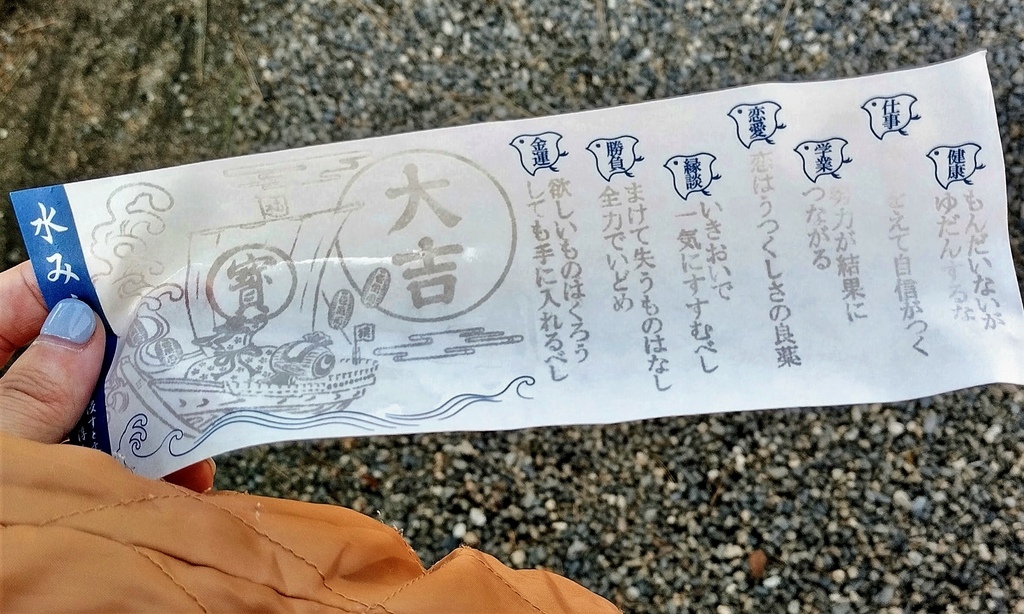 健康
もんだいないが
ゆだんするな
仕事
えて自信がつく
学業
努力が結果に
つながる
恋愛
恋はうつくしさの良薬
縁談
いきおいで
一気にすすむべし
勝負
まけて失うものはなし
全力でいどめ
金運
欲しいものはくろう
しても手に入れるべし
大吉
寶
水み